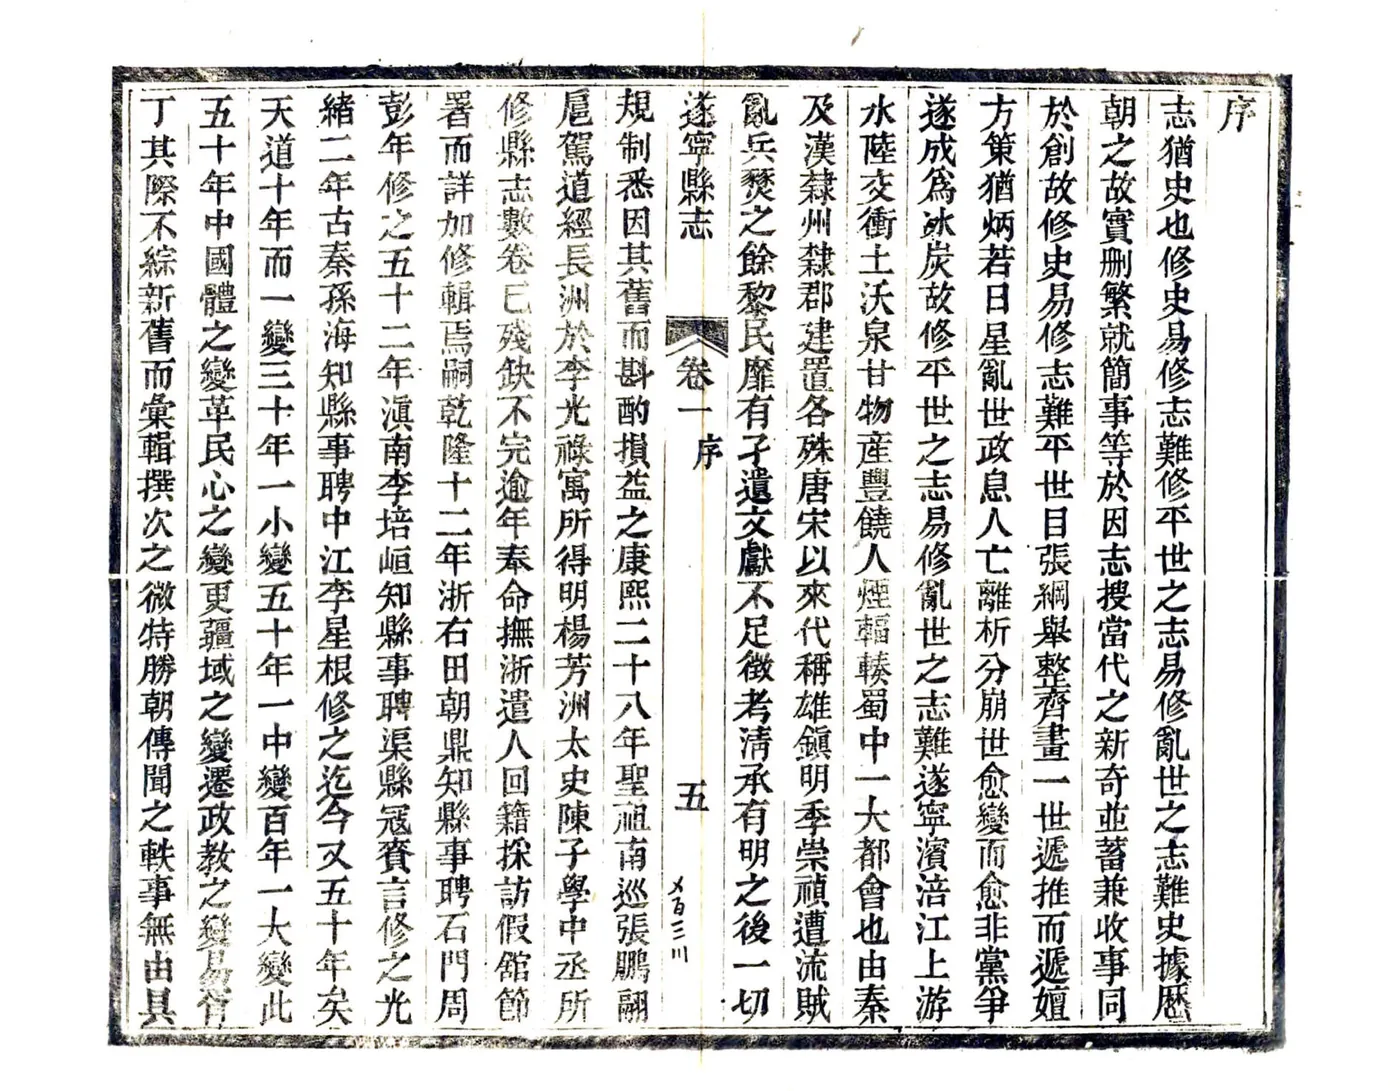 序
志猶史也修史易修志難修平世之志易修亂世之志難史據歷
朝之故實删繁就簡事等於因志搜當代之新奇並蓄兼收事同
於創故修史易修志難平世目張綱舉整齊畫一世遞推而遞嬗
方策猶炳若日星亂世政息人亡離析分崩世愈變而愈非黨爭
遂成爲冰炭故修平世之志易修亂世之志難遂寧濱涪江上游
水陸交衝土沃泉甘物産豐饒人煙輻輳蜀中一大都會也由秦
及漢隸州隸郡建置各殊唐宋以來代稱雄鎭明季崇禎遭流賊
亂兵燹之餘黎民靡有孑遺文獻不足徵考淸承有明之後一切
遂寧縣志
卷一
序
五
〤百二〣
規制悉因其舊而斟酌損益之康熙二十八年聖祖南巡張鵬翮
扈駕道經長洲於李光祿寓所得明楊芳洲太史陳子學中丞所
修縣志數卷已殘缺不完逾年奉命撫浙遣人回籍採訪假舘節
署而詳加修輯焉嗣乾隆十二年浙右田朝鼎知縣事聘石門周
彭年修之五十二年滇南李培峘知縣事聘渠縣寇賚言修之光
緒二年古秦孫海知縣事聘中江李星根修之迄今又五十年矣
天道十年而一變三十年一小變五十年一中變百年一大變此
五十年中國體之變革民心之變更疆域之變遷政教之變易胥
丁其際不綜新舊而彙輯撰次之微特勝朝傳聞之軼事無由具